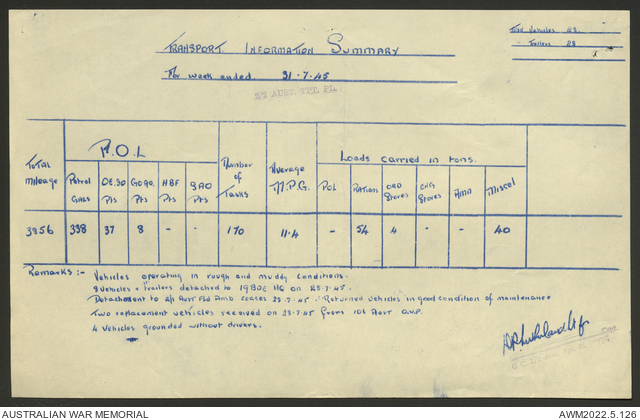 Total Vehicles 43
" Trailers 23
TRANSPORT INFORMATION SUMMARY
For week ended. 31.7.45
AUST.
TOTAL Mileage
P.O.L
Petrol GALLS
OE.30 Pts
GO90 Pts
HBF Pts
Pts
Number of Tasks
Average M.P.G.
Loads carried in tons.
POL
RATIONS
ORD Stores
ENG Stores
AMN
Miscel
3856 338 37 8 - - 170 11.4 - 54 4 - - 40
Remarks :- Vehicles operating in rough and muddy conditions.
Vehicles + Trailers detached to 19 BDE on 25.7.45.
Detachment to Aust Fld Amb ceases 25.7.45. Returned vehicles in good condition of maintenance
Two replacement vehicles received on 25.7.45 from 101 Aust O.V.P.
4 Vehicles grounded without drivers.
AUSTRALIAN WAR MEMORIAL
AWM2022.5.126